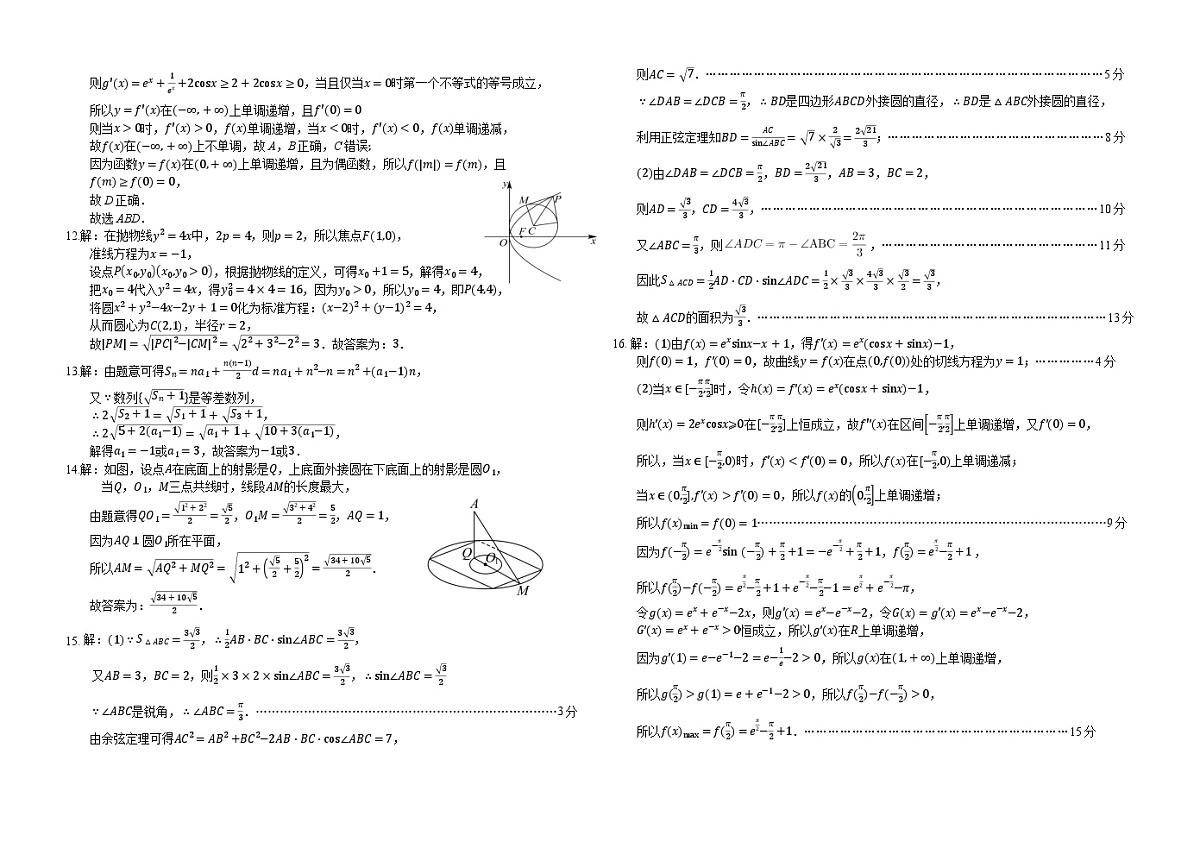 则g′(x)=eˣ+1/eˣ+2cosx≥2+2cosx≥0，当且仅当x=0时第一个不等式的等号成立，
所以y=f′(x)在(−∞,+∞)上单调递增，且f′(0)=0
则当x>0时，f′(x)>0，f(x)单调递增，当x<0时，f′(x)<0，f(x)单调递减，
故f(x)在(−∞,+∞)上不单调，故A，B正确，C错误;
因为函数y=f(x)在(0,+∞)上单调递增，且为偶函数，所以f(|m|)=f(m)，且
f(m)≥f(0)=0，
故D正确．
故选ABD．
12.解：在抛物线y²=4x中，2p=4，则p=2，所以焦点F(1,0)，
准线方程为x=−1，
设点P(x₀,y₀)(x₀,y₀>0)，根据抛物线的定义，可得x₀+1=5，解得x₀=4，
把x₀=4代入y²=4x，得y₀²=4×4=16，因为y₀>0，所以y₀=4，即P(4,4)，
将圆x²+y²−4x−2y+1=0化为标准方程：(x−2)²+(y−1)²=4，
从而圆心为C(2,1)，半径r=2，
故|PM|=√(|PC|²−|CM|²)=√(2²+3²−2²)=3．故答案为：3．
y
M
P
F C
O
x
13.解：由题意可得Sₙ=na₁+n(n−1)/2 d=na₁+n²−n=n²+(a₁−1)n，
又∵数列{√(Sₙ+1)}是等差数列，
∴2√(S₂+1)=√(S₁+1)+√(S₃+1)，
∴2√(5+2(a₁−1))=√(a₁+1)+√(10+3(a₁−1))，
解得a₁=−1或a₁=3，故答案为−1或3．
14.解：如图，设点A在底面上的射影是Q，上底面外接圆在下底面上的射影是圆O₁，
当Q，O₁，M三点共线时，线段AM的长度最大，
由题意得QO₁=√(1²+2²)/2=√5/2，O₁M=√(3²+4²)/2=5/2，AQ=1，
因为AQ⊥圆O₁所在平面，
所以AM=√(AQ²+MQ²)=√(1²+(√5/2+5/2)²)=√(34+10√5)/2．
故答案为：√(34+10√5)/2．
A
Q
O₁
M
15.解：(1)∵S△ABC=3√3/2，∴1/2AB·BC·sin∠ABC=3√3/2，
又AB=3，BC=2，则1/2×3×2×sin∠ABC=3√3/2，∴sin∠ABC=√3/2
∵∠ABC是锐角，∴∠ABC=π/3．……………………………………………………………………3分
由余弦定理可得AC²=AB²+BC²−2AB·BC·cos∠ABC=7，
则AC=√7．………………………………………………………………………………………5分
∵∠DAB=∠DCB=π/2，∴BD是四边形ABCD外接圆的直径，∴BD是△ABC外接圆的直径，
利用正弦定理知BD=AC/sin∠ABC=√7×2/√3=2√21/3；………………………………………………8分
(2)由∠DAB=∠DCB=π/2，BD=2√21/3，AB=3，BC=2，
则AD=√3/3，CD=4√3/3，…………………………………………………………………………10分
又∠ABC=π/3，则∠ADC=π−∠ABC=2π/3，………………………………………………11分
因此S△ACD=1/2AD·CD·sin∠ADC=1/2×√3/3×4√3/3×√3/2=√3/3，
故△ACD的面积为√3/3．……………………………………………………………………………13分
16.解：(1)由f(x)=eˣsinx−x+1，得f′(x)=eˣ(cosx+sinx)−1，
则f(0)=1，f′(0)=0，故曲线y=f(x)在点(0,f(0))处的切线方程为y=1；……………4分
(2)当x∈[−π/2,π/2]时，令h(x)=f′(x)=eˣ(cosx+sinx)−1，
则h′(x)=2eˣcosx⩾0在[−π/2,π/2]上恒成立，故f″(x)在区间[−π/2,π/2]上单调递增，又f′(0)=0，
所以，当x∈[−π/2,0)时，f′(x)<f′(0)=0，所以f(x)在[−π/2,0)上单调递减；
当x∈(0,π/2],f′(x)>f′(0)=0，所以f(x)的(0,π/2]上单调递增；
所以f(x)min=f(0)=1……………………………………………………………………………9分
因为f(−π/2)=e^(−π/2)sin(−π/2)+π/2+1=−e^(−π/2)+π/2+1，f(π/2)=e^(π/2)−π/2+1，
所以f(π/2)−f(−π/2)=e^(π/2)−π/2+1+e^(−π/2)−π/2−1=e^(π/2)+e^(−π/2)−π，
令g(x)=eˣ+e⁻ˣ−2x，则g′(x)=eˣ−e⁻ˣ−2，令G(x)=g′(x)=eˣ−e⁻ˣ−2，
G′(x)=eˣ+e⁻ˣ>0恒成立，所以g′(x)在R上单调递增，
因为g′(1)=e−e⁻¹−2=e−1/e−2>0，所以g(x)在(1,+∞)上单调递增，
所以g(π/2)>g(1)=e+e⁻¹−2>0，所以f(π/2)−f(−π/2)>0，
所以f(x)max=f(π/2)=e^(π/2)−π/2+1．…………………………………………………………15分